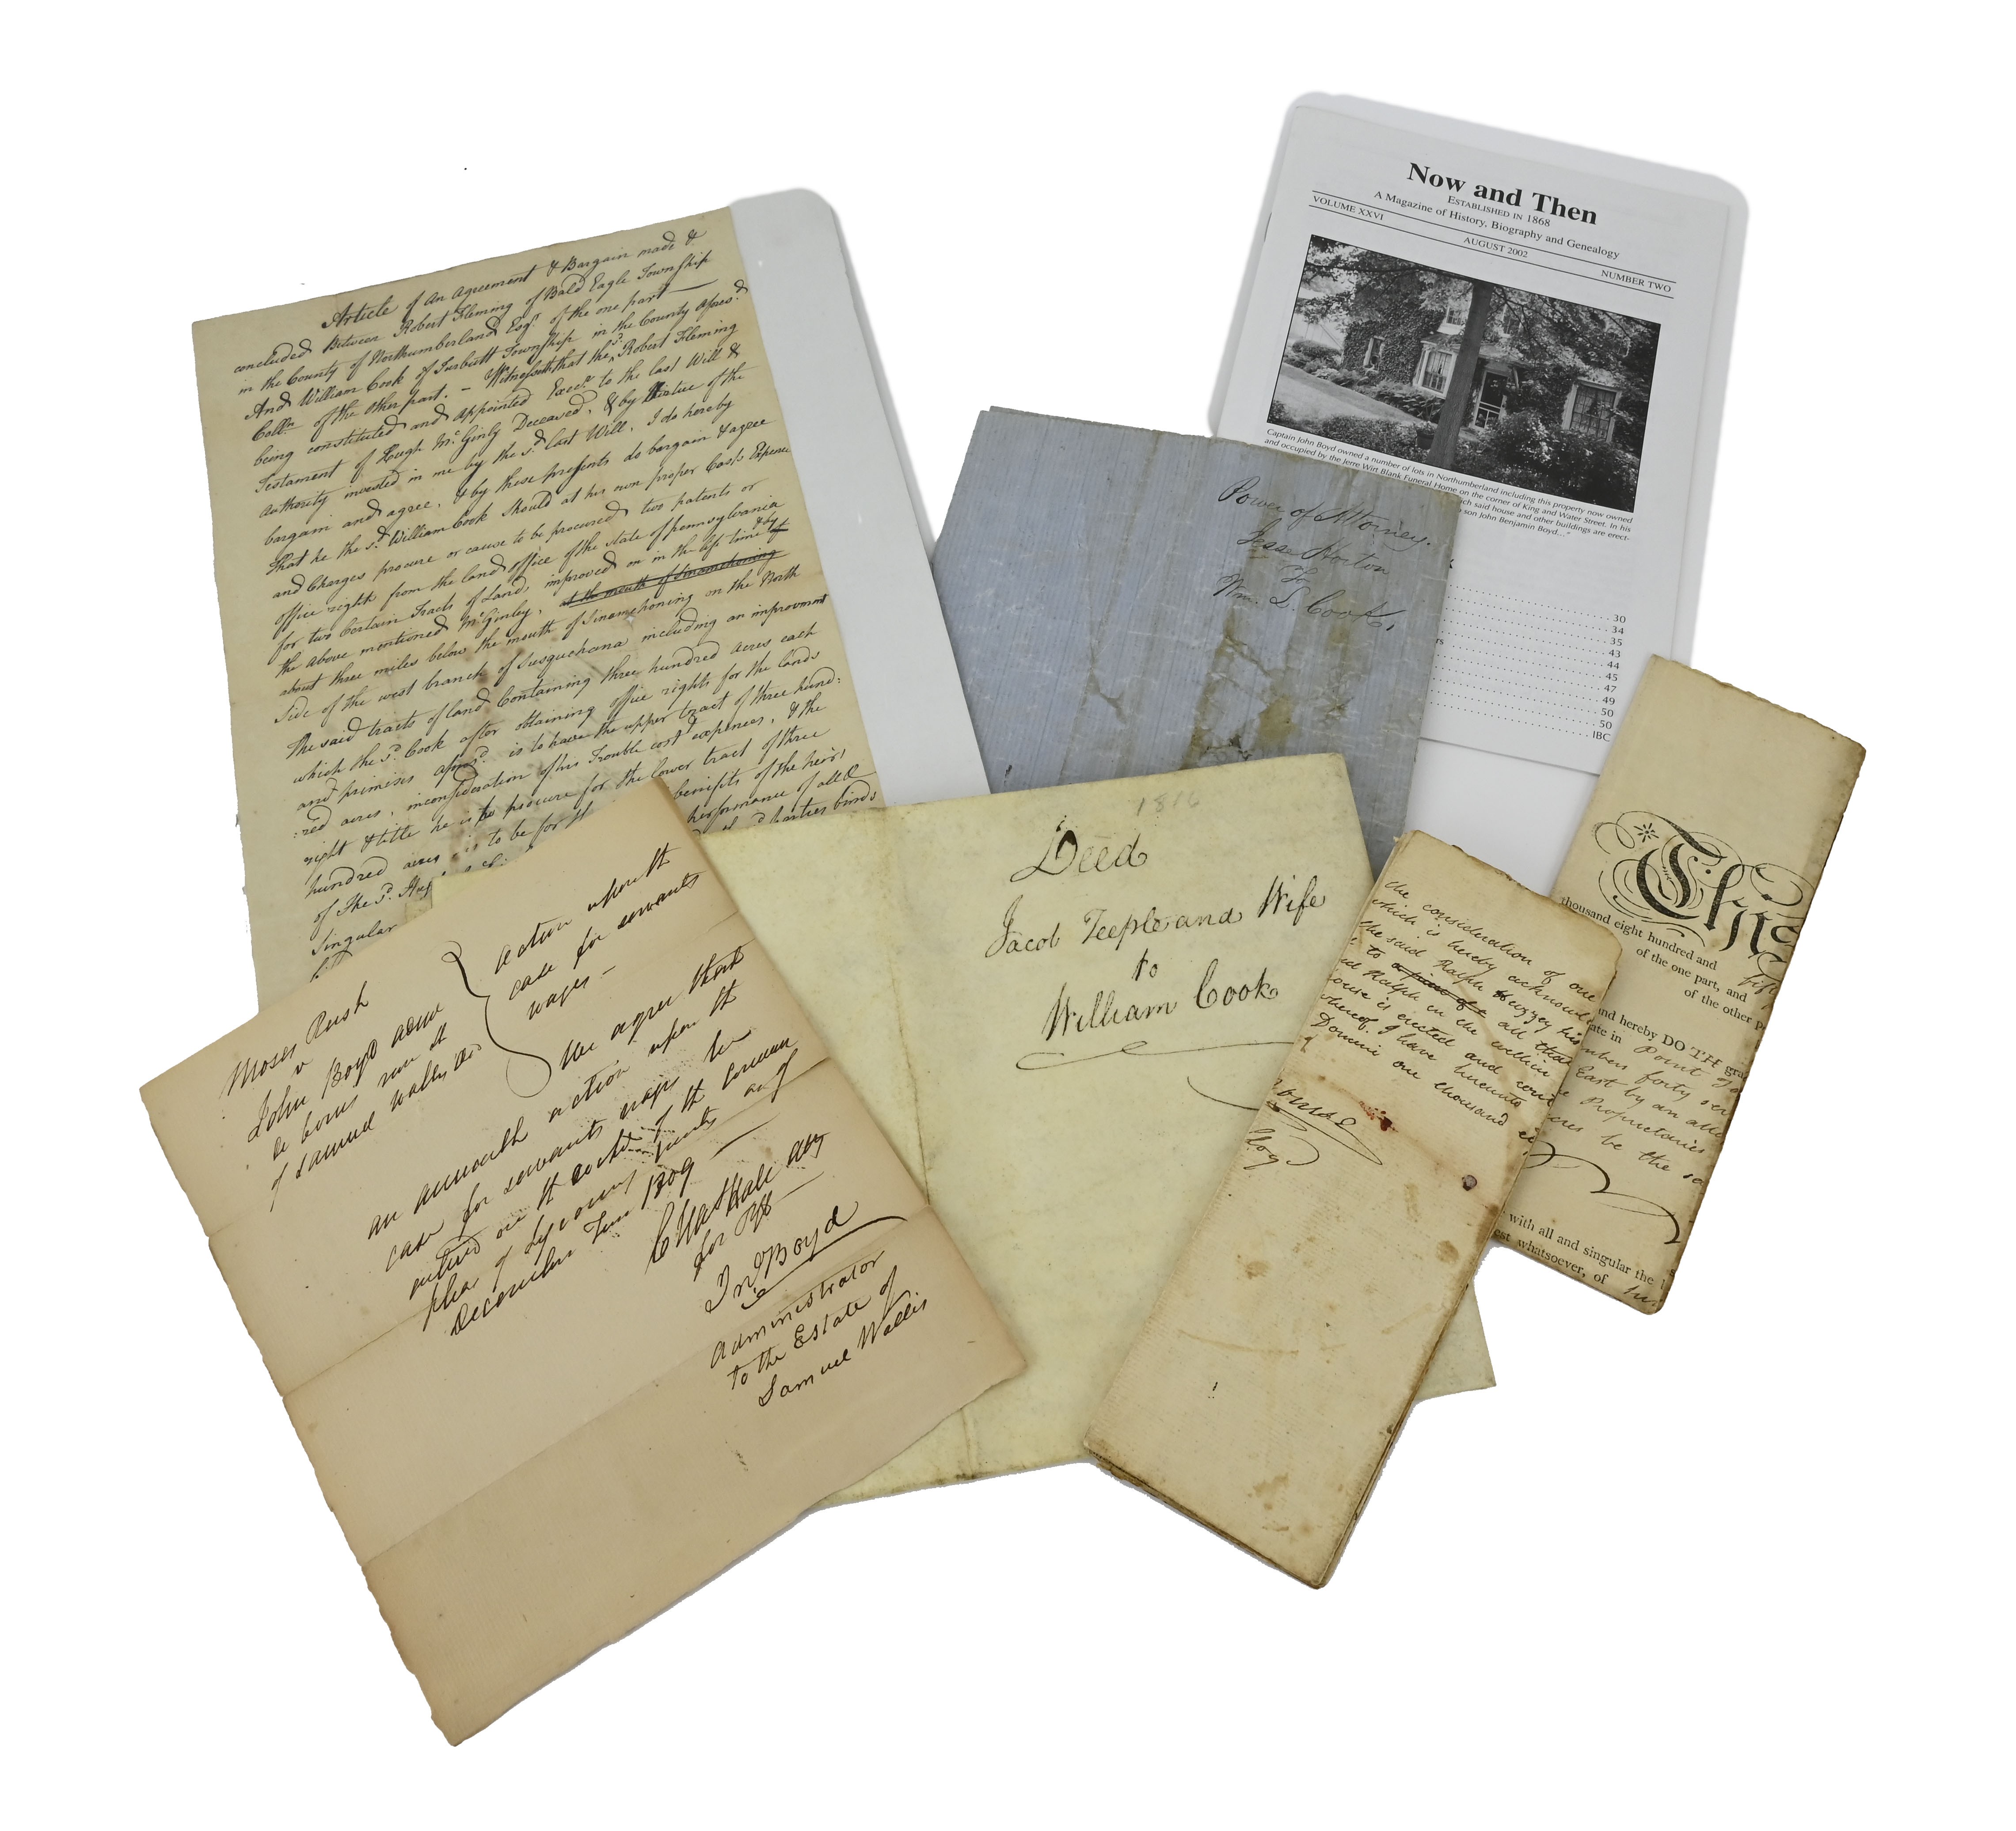 Article of An Agreement & Bargain made &
concluded Between Robert Fleming of Bald Eagle Township
in the County of Northumberland Esqr. of the one part
And William Cook of Turbutt Township in the County afores.d
of the other part. - Witnesseth that the sd. Robert Fleming
being constituted and appointed Execr. to the last Will &
Testament of Hugh McGinly Deceased, & by Virtue of the
authority invested in me by the sd. last Will, I do hereby
bargain and agree, & by these presents do bargain & agree
That he the sd. William Cook Should at his own proper Costs Expence
and Charges procure or cause to be procured two patents or
office rights from the land office of the state of pennsylvania
for two Certain Tracts of Land, improved on in the life time of
the above mentioned McGinley, at the mouth of Sinamehoning
about three miles below the mouth of Sinamehoning on the North
Side of the west branch of Susquehana including an improvment
The said tracts of land Containing three hundred acres each
which the sd. Cook after obtaining office rights for the lands
and primises aforsd. is to have the upper tract of three hund:
:red acres, inconsideration of his Trouble cost & expences, & the
right & title he is to procure for the lower tract of three
hundred acres is to be for the benifits of the heirs
of The sd.
performance of all &
Singular
parties binds
Now and Then
ESTABLISHED IN 1868
A Magazine of History, Biography and Genealogy
VOLUME XXVI AUGUST 2002 NUMBER TWO
Captain John Boyd owned a number of lots in Northumberland including this property now owned
and occupied by the Jerre Wirt Blank Funeral Home on the corner of King and Water Street. In his
which said house and other buildings are erect-
son John Benjamin Boyd..."
30
34
35
43
44
45
47
49
50
50
IBC
Power of Attorney.
Jesse Horton
To
Wm. L. Cook.
1816
Deed
Jacob Teeple and Wife
to
William Cook
Moses Rush
v
John Boyd admr
de bonis non &
of Samuel Wallis decd
action upon the
case for servants
wages -
We agree that
an amicable action upon the
case for servants wages be
entered on the docket of the common
pleas of Lycoming county as of
December Term 1809
Chas Hall atty
for Plff
Jno Boyd
administrator
to the Estate of
Samuel Wallis
the consideration of one
which is hereby acknowl
the said Ralph
to a piece of all that
Ralph in the within
house is erected and
whereof I have hereunto
Domini one thousand
This
thousand eight hundred and
of the one part, and
of the other p
and hereby DO TH gra
ate in Point
mbers forty
East by an
Proprietaries
be the
with all and singular the
est whatsoever, of